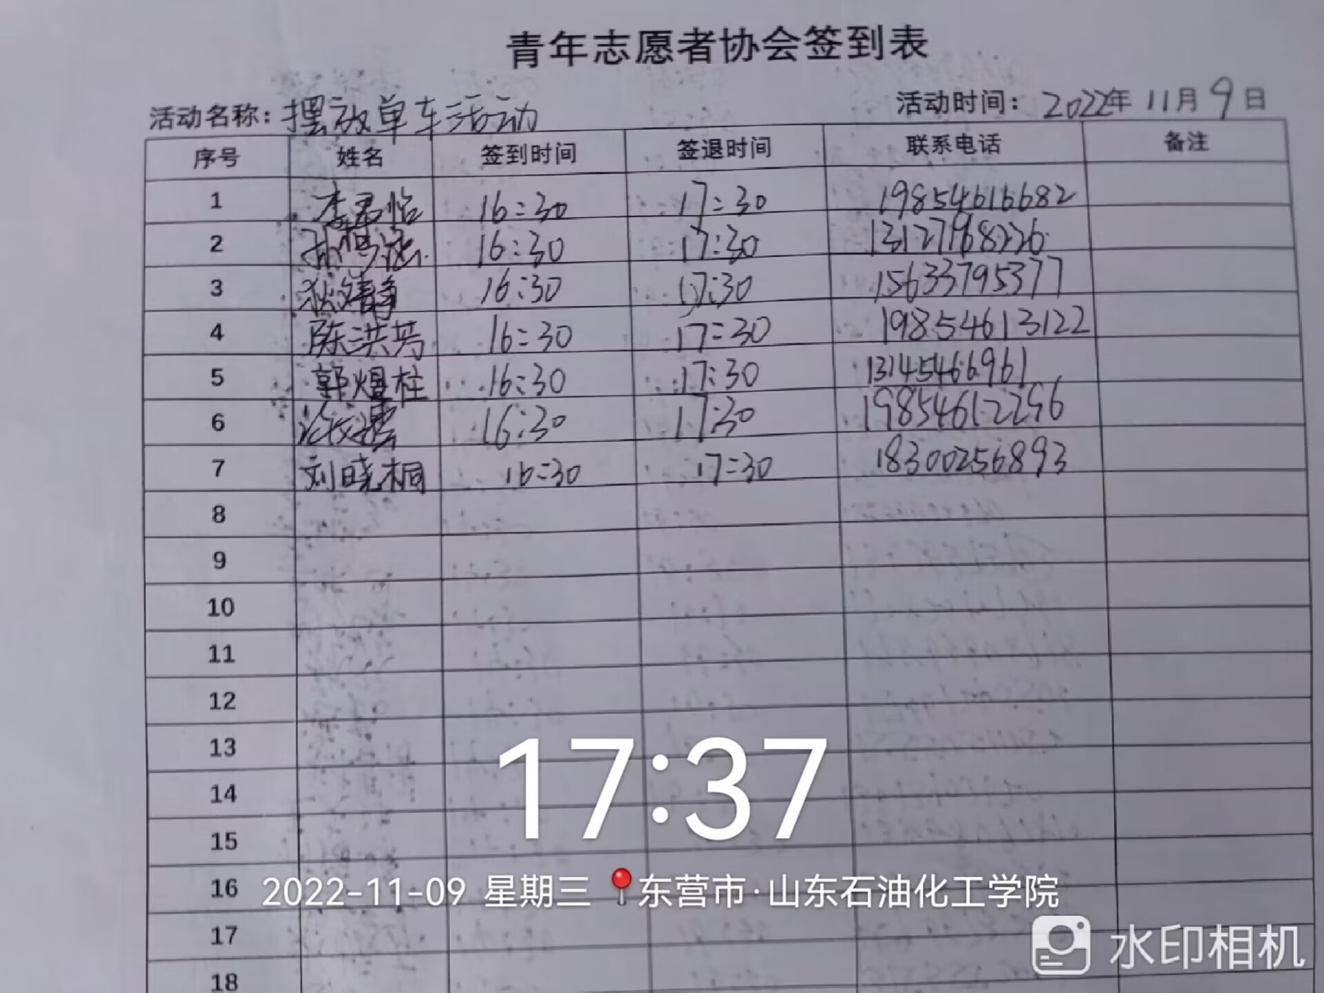 青年志愿者协会签到表
活动名称：摆放单车活动 活动时间：2022年 11月 9日
序号 姓名 签到时间 签退时间 联系电话 备注
1 李君怡 16:30 17:30 19854616682
2 16:30 17:30 13127968226
3 16:30 17:30 15633795377
4 陈洪芳 16:30 17:30 19854613122
5 郭煜柱 16:30 17:30 13145466961
6 16:30 17:30 19854612256
7 刘晓桐 16:30 17:30 18300256893
8
9
10
11
12
13
14
15
16
17
18
17:37
2022-11-09 星期三 东营市·山东石油化工学院
水印相机